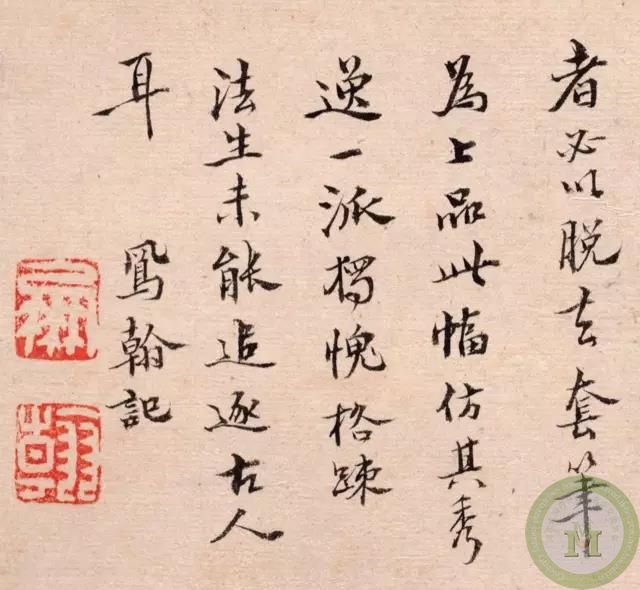 者必以脱去套筆
為上品此幅仿其秀
逸一派獨愧格踈
法生未能追逐古人
耳
鳳翰記
M